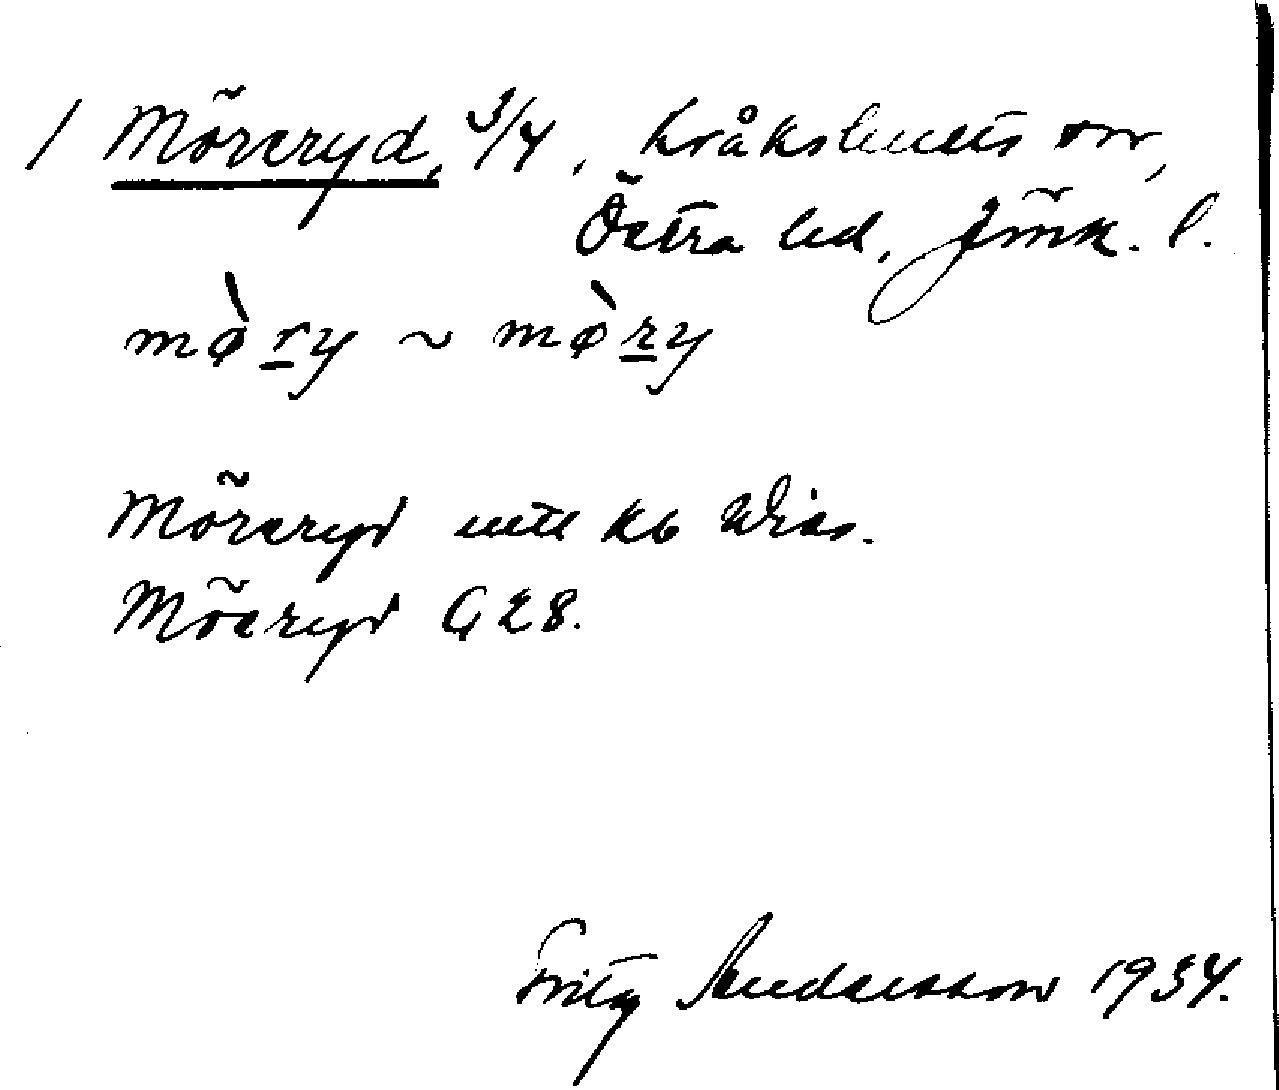 1 Möreryd, 3/4, Kråkshults sn,
Östra hd, Jönk. l.
mø̀ry ~ mø̀ry
Möreryd uttl kb
Möeryd G 28.
Fritz Andersson 1934.